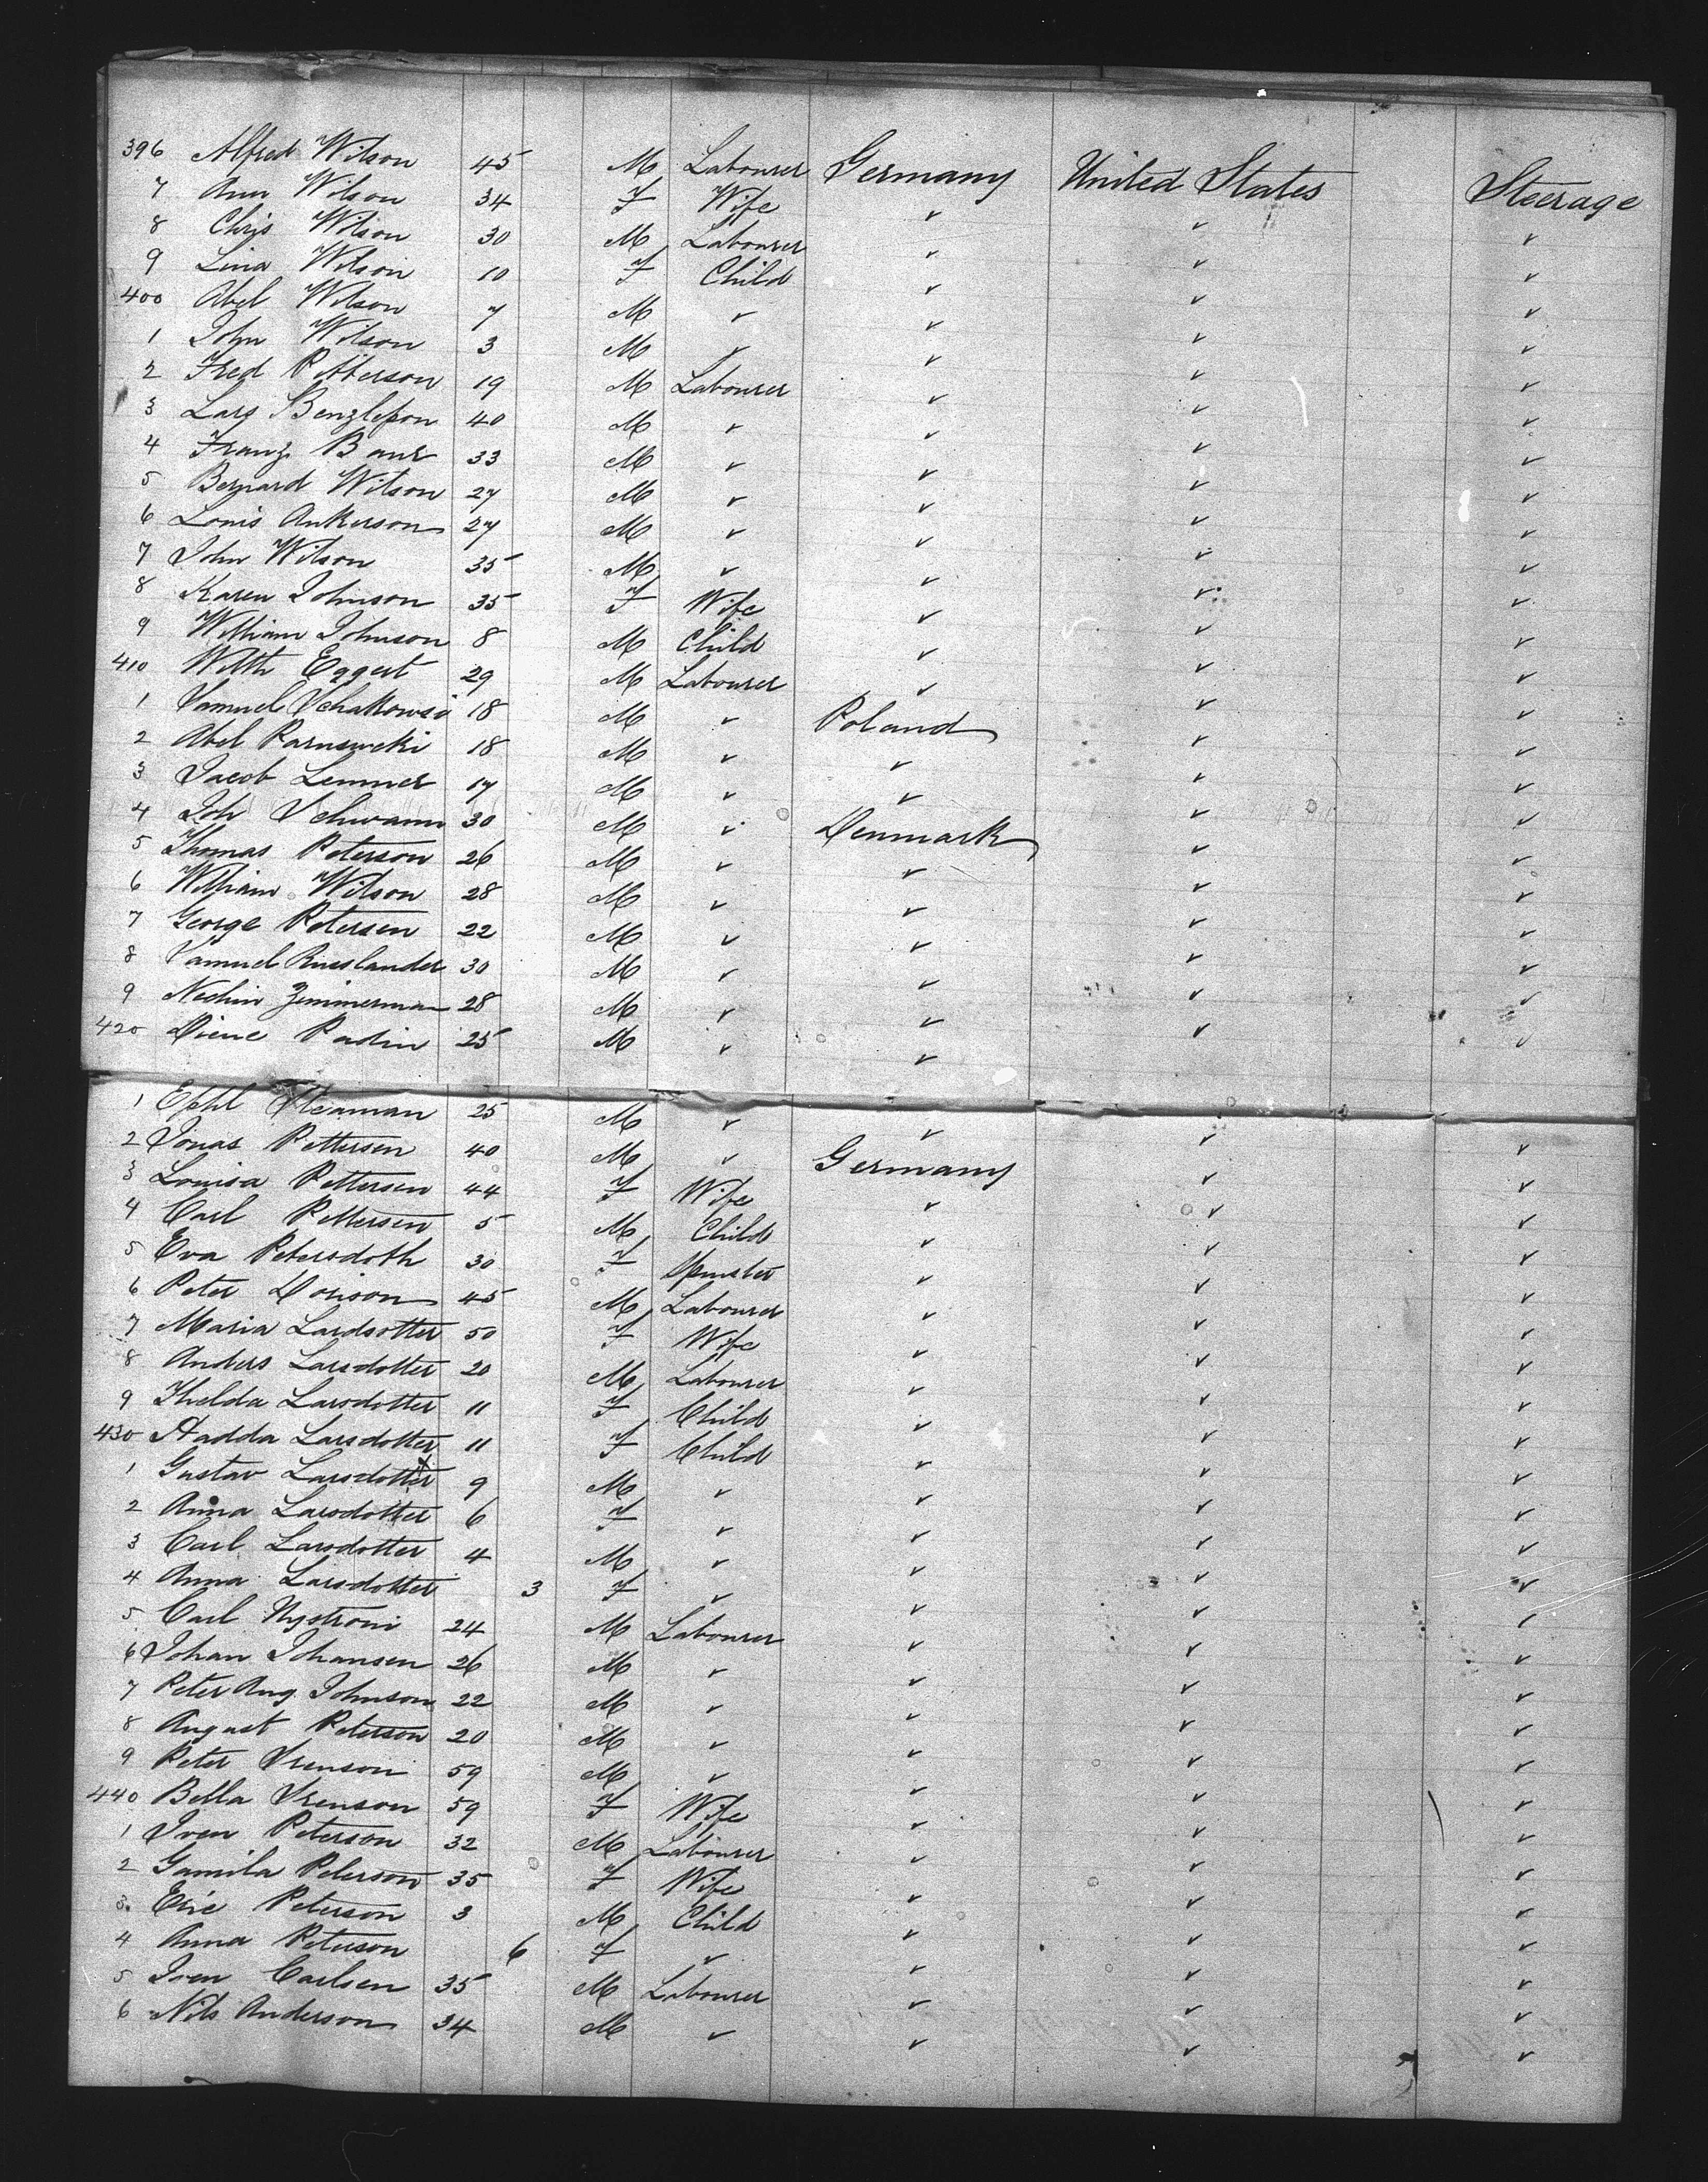 396 Alfred Wilson 45 M Labourer Germany United States Steerage
7 Ann Wilson 34 F Wife ✓ ✓ ✓
8 Chrys Wilson 30 M Labourer ✓ ✓ ✓
9 Lina Wilson 10 F Child ✓ ✓ ✓
400 Abel Wilson 7 M ✓ ✓ ✓ ✓
1 John Wilson 3 M ✓ ✓ ✓ ✓
2 Fred Petterson 19 M Labourer ✓ ✓ ✓
3 Lars 40 M ✓ ✓ ✓ ✓
4 Franz Baur 33 M ✓ ✓ ✓ ✓
5 Bernard Wilson 27 M ✓ ✓ ✓ ✓
6 Louis Ankerson 27 M ✓ ✓ ✓ ✓
7 John Wilson 35 M ✓ ✓ ✓ ✓
8 Karen Johnson 35 F Wife ✓ ✓ ✓
9 William Johnson 8 M Child ✓ ✓ ✓
410 Eggert 29 M Labourer ✓ ✓ ✓
1 Samuel Schakowsi 18 M ✓ Poland ✓ ✓
2 Abel 18 M ✓ ✓ ✓ ✓
3 Jacob Lemmer 17 M ✓ ✓ ✓ ✓
4 Joh Schwann 30 M ✓ Denmark ✓ ✓
5 Thomas Peterson 26 M ✓ ✓ ✓ ✓
6 William Wilson 28 M ✓ ✓ ✓ ✓
7 George Petersen 22 M ✓ ✓ ✓ ✓
8 Samuel 30 M ✓ ✓ ✓ ✓
9 Zimmerman 28 M ✓ ✓ ✓ ✓
420 25 M ✓ ✓ ✓ ✓
1 25 M ✓ ✓ ✓ ✓
2 Jonas Pettersen 40 M ✓ Germany ✓ ✓
3 Louisa Pettersen 44 F Wife ✓ ✓ ✓
4 Carl Pettersen 5 M Child ✓ ✓ ✓
5 Eva Petersdoth 30 F Spinster ✓ ✓ ✓
6 Peter 45 M Labourer ✓ ✓ ✓
7 Maria Lardsotter 50 F Wife ✓ ✓ ✓
8 Anders Larsdotter 20 M Labourer ✓ ✓ ✓
9 Thelda Larsdotter 11 F Child ✓ ✓ ✓
430 Hadda Larsdotter 11 F Child ✓ ✓ ✓
1 Gustav Larsdotter 9 M ✓ ✓ ✓ ✓
2 Anna Larsdotter 6 F ✓ ✓ ✓ ✓
3 Carl Larsdotter 4 M ✓ ✓ ✓ ✓
4 Anna Larsdotter 3 F ✓ ✓ ✓ ✓
5 Carl Nystrom 24 M Labourer ✓ ✓ ✓
6 Johan Johansen 26 M ✓ ✓ ✓ ✓
7 Peter Aug. Johnson 22 M ✓ ✓ ✓ ✓
8 August Peterson 20 M ✓ ✓ ✓ ✓
9 Peter 59 M ✓ ✓ ✓ ✓
440 Bella 59 F Wife ✓ ✓ ✓
1 Sven Peterson 32 M Labourer ✓ ✓ ✓
2 Gamila Peterson 35 F Wife ✓ ✓ ✓
3 Eric Peterson 3 M Child ✓ ✓ ✓
4 Anna Peterson 6 F ✓ ✓ ✓ ✓
5 Sven Carlsen 35 M Labourer ✓ ✓ ✓
6 Nils Anderson 34 M ✓ ✓ ✓ ✓